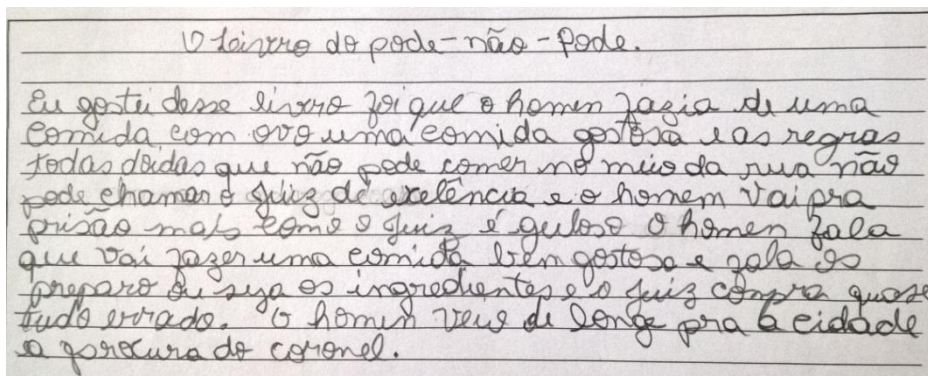 O Livro do pode-não-pode.
Eu gostei desse livro foi que o homen fazia de uma
comida com ovo uma comida gostosa e as regras
todas doidas que não pode comer no meio da rua não
pode chamar o juiz de excelência e o homem vai pra
prisão mais como o juiz é guloso o homen fala
que vai fazer uma comida bem gostosa e fala os
preparo ou seja os ingredientes e o juiz compra quase
tudo errado. O homen veio de longe pra a cidade
a procura do coronel.